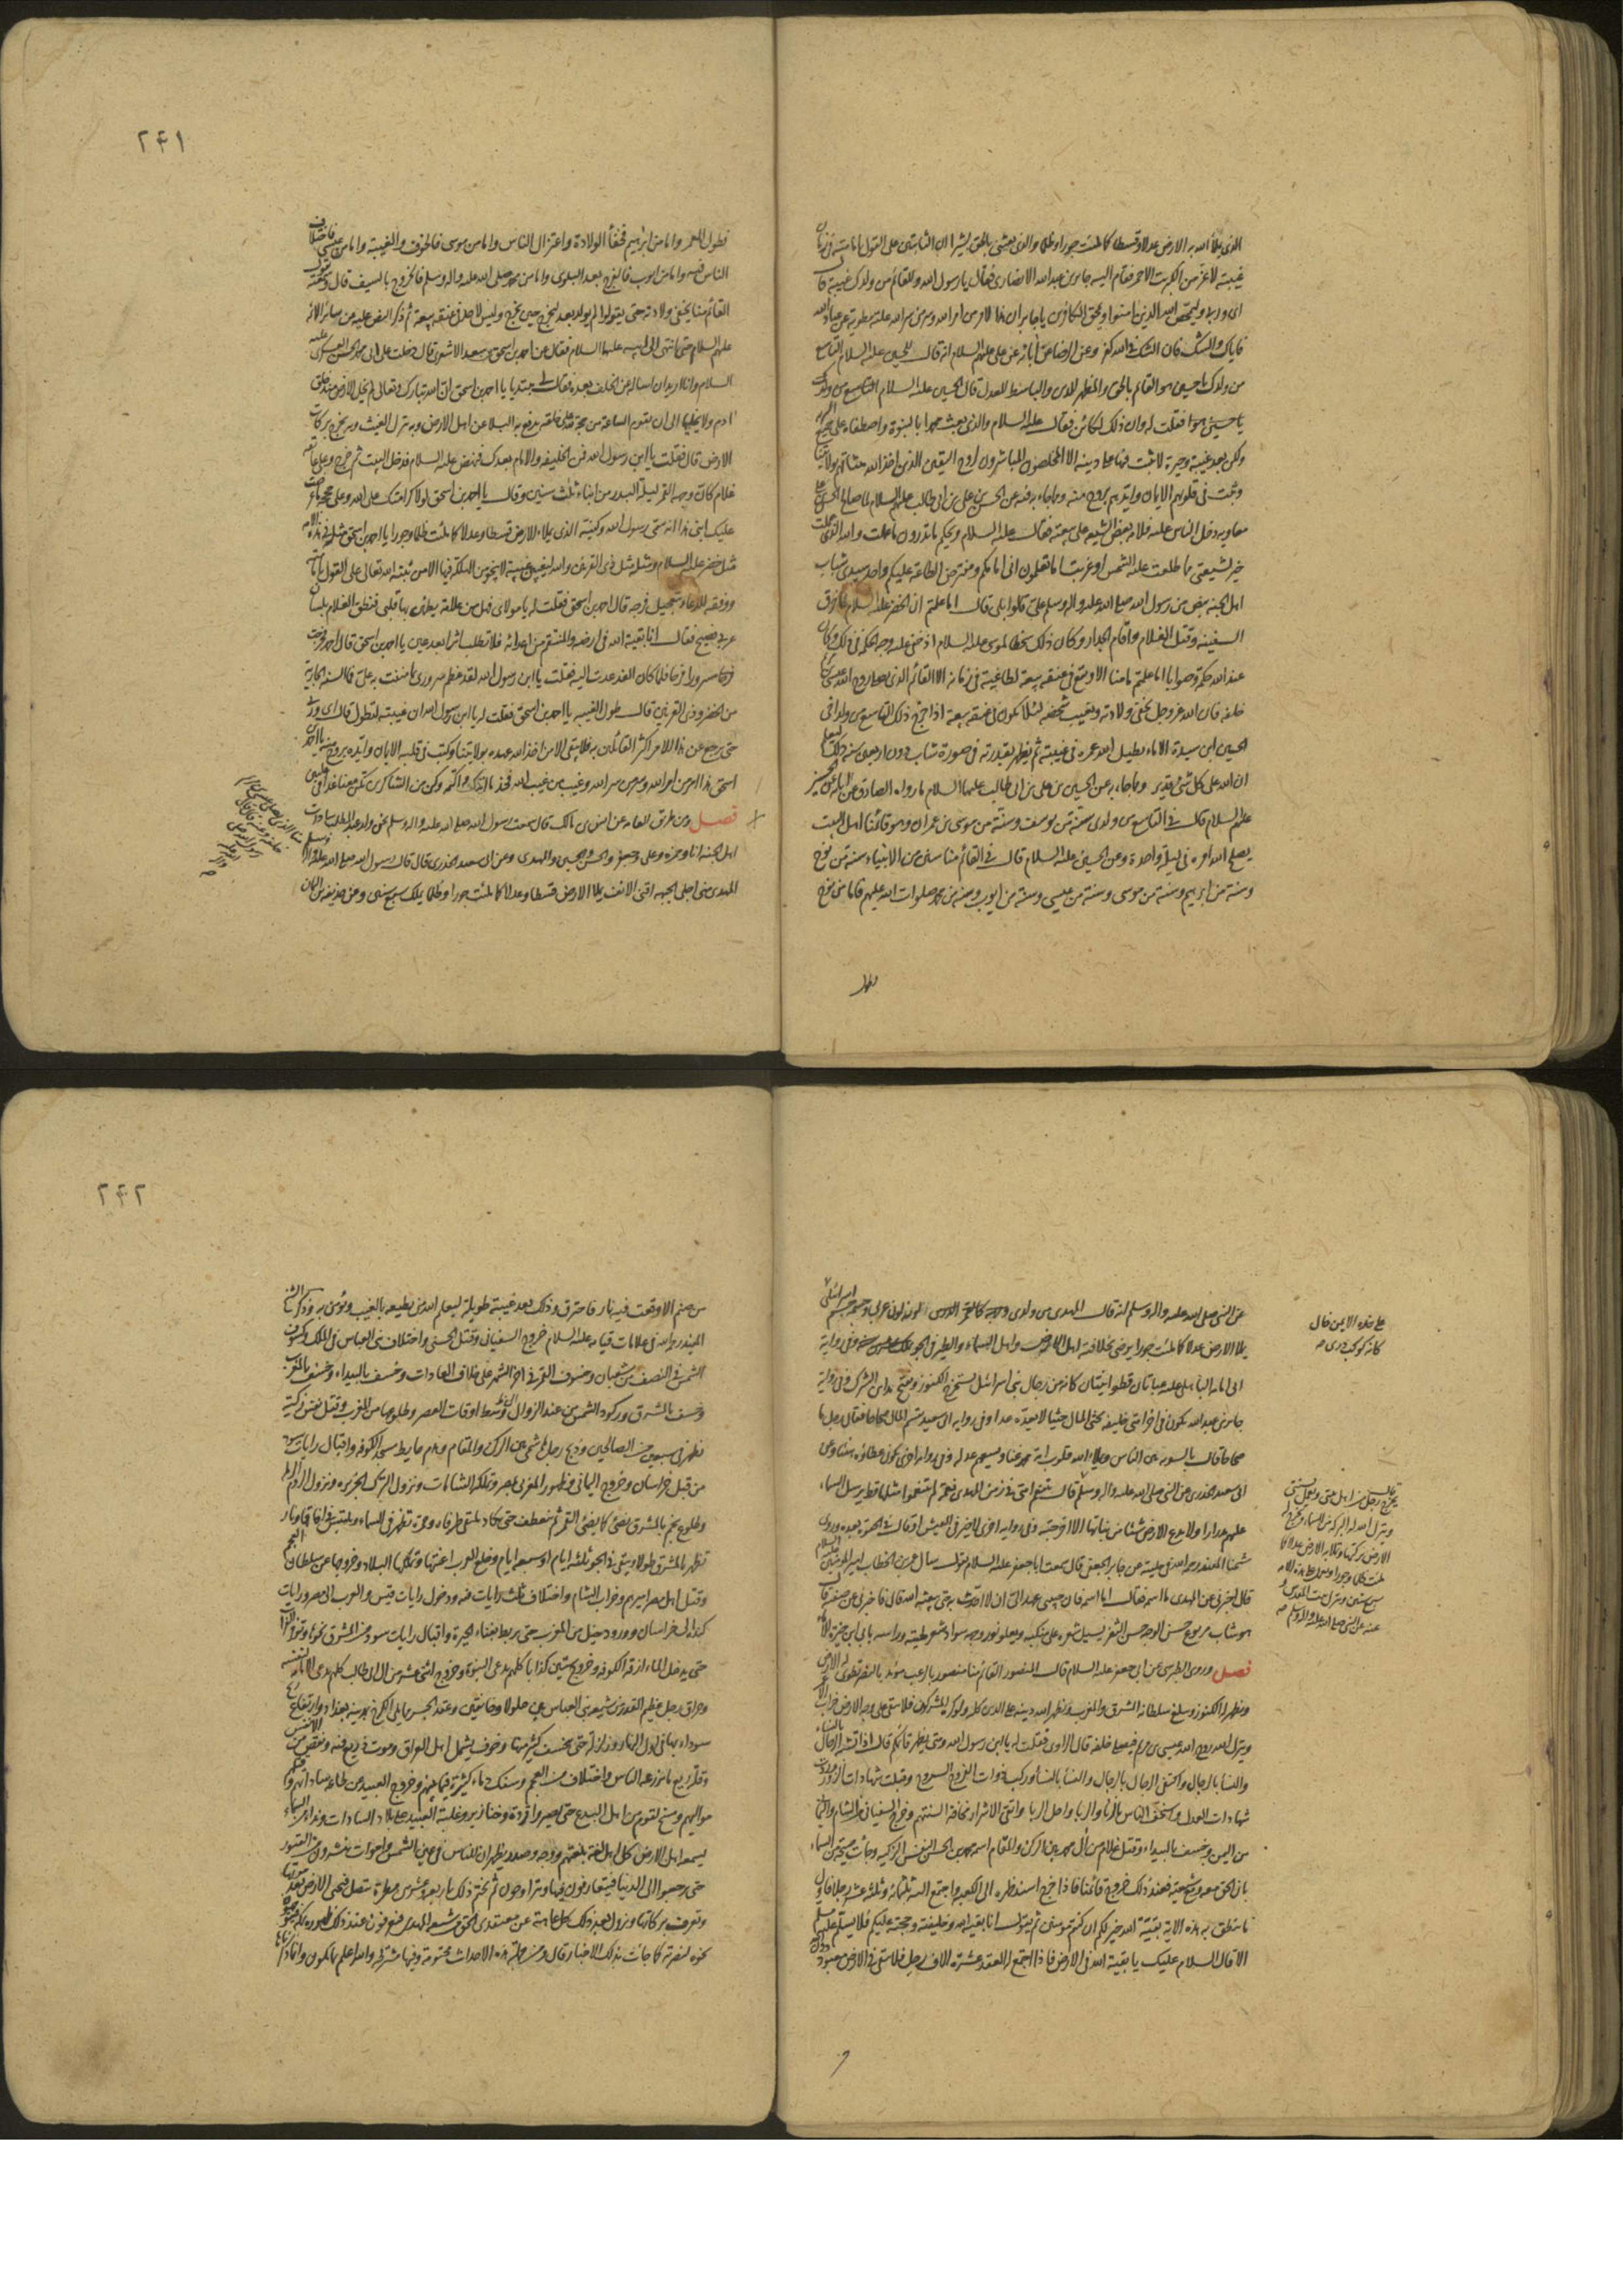 الذي يملأ الله به الارض عدلا وقسطا كما ملئت جورا وظلما والذي بعثني بالحق بشيرا ان الثابتين على القول بامامته في زمان
غيبته لاعز من الكبريت الاحمر فقام اليه جابر بن عبد الله الانصاري فقال يا رسول الله وللقائم من ولدك غيبة قال
اي وربي وليمحص الله الذين امنوا ويمحق الكافرين يا جابر ان هذا لامر من امر الله وسر من سر الله علته مطوية عن عباد الله
فاياك والشك فان الشك في الله كفر وعن الرضا عن آبائه عن علي عليهم السلام انه قال للحسين عليه السلام التاسع
من ولدك يا حسين هو القائم بالحق والمظهر للدين والباسط للعدل قال الحسين عليه السلام
فقلت له وان ذلك لكائن فقال عليه السلام والذي بعث محمدا بالنبوة واصطفاه على جميع البرية
ولكن بعد غيبة وحيرة لا يثبت فيها على دينه الا المخلصون المباشرون لروح اليقين الذين اخذ الله ميثاقهم بولايتنا
وكتب في قلوبهم الايمان وايدهم بروح منه ومما جاء برفعه عن الحسن بن علي بن ابي طالب عليهم السلام لما صالح الحسن
معاويه دخل الناس عليه فلامه بعض الشيعه على بيعته فقال عليه السلام ويحكم ما تدرون ما عملت والله الذي عملت
خير لشيعتي مما طلعت عليه الشمس او غربت اما تعلمون اني امامكم ومفترض الطاعة عليكم واحد سيدي شباب
اهل الجنه بنص من رسول الله صلى الله عليه واله وسلم علي قالوا بلى قال اما علمتم ان الخضر عليه السلام لما خرق
السفينه وقتل الغلام واقام الجدار وكان ذلك سخطا لموسى عليه السلام اذ خفي عليه وجه الحكمه في ذلك وكان
عند الله حكمة وصوابا اما علمتم ما منا الا ويقع في عنقه بيعة لطاغية في زمانه الا القائم الذي يصلي روح الله عيسى
خلفه فان الله عز وجل يخفي ولادته ويغيب شخصه لئلا يكون في عنقه بيعة اذا خرج ذلك التاسع من ولد اخي
الحسين ابن سيدة الاماء يطيل الله عمره في غيبته ثم يظهره بقدرته في صورة شاب دون اربعين سنه ذلك ليعلم
ان الله على كل شيء قدير ومما جاء به عن الحسين بن علي بن ابي طالب عليهما السلام ما رواه الصادق
عليهم السلام قال في التاسع من ولدي سنة من يوسف وسنة من موسى بن عمران وهو قائمنا اهل البيت
يصلح الله امره في ليلة واحدة وعن الحسين عليه السلام قال في القائم منا سنن من الانبياء سنة من نوح
وسنة من ابراهيم وسنة من موسى وسنة من عيسى وسنة من ايوب وسنة من محمد صلوات الله عليهم فاما من نوح
فطول
٢٤١
فطول العمر واما من ابراهيم فخفأ الولادة واعتزال الناس واما من موسى فالخوف والغيبة واما من عيسى فاختلاف
الناس فيه واما من ايوب فالفرج بعد البلوى واما من محمد صلى الله عليه واله وسلم فالخروج بالسيف قال
القائم منا يخفى ولادته حتى يقولوا لم يولد بعد ليخرج حين يخرج وليس لاحد في عنقه بيعة ثم ذكر النص عليه من سائر الائمه
عليهم السلام حتى انتهى الى ابيه عليهما السلام فقال عن احمد بن اسحق بن سعيد الاشعري قال دخلت على ابي محمد الحسن العسكري عليه
السلام وانا اريد ان اساله عن الخلف بعده فقال مبتديا يا احمد بن اسحق ان الله تبارك وتعالى لم يخل الارض منذ خلق
ادم ولا يخليها الى ان تقوم الساعة من حجة على خلقه به يدفع البلاء عن اهل الارض وبه ينزل الغيث وبه يخرج بركات
الارض قال فقلت يا ابن رسول الله فمن الخليفه والامام بعدك فنهض عليه السلام فدخل البيت ثم خرج وعلى عاتقه
غلام كان وجهه القمر ليلة البدر من ابناء ثلث سنين وقال يا احمد بن اسحق لولا كرامتك على الله وعلى حججه ما عرضت
عليك ابني هذا انه سمي رسول الله وكنيه الذي يملاء الارض قسطا وعدلا كما ملئت ظلما وجورا يا احمد بن اسحق مثله في هذه الامه
مثل خضر عليه السلام ومثله مثل ذي القرنين والله ليغيبن غيبة لا ينجو من الهلكة فيها الا من ثبته الله تعالى على القول بامامته
ووفقه للدعاء بتعجيل فرجه قال احمد بن اسحق فقلت له يا مولاي فهل من علامة يطمئن بها قلبي فنطق الغلام بلسان
عربي فصيح فقال انا بقية الله في ارضه والمنتقم من اعدائه فلا تطلب اثرا بعد عين يا احمد بن اسحق قال احمد فخرجت
فرحا مسرورا فلما كان الغد عدت اليه فقلت يا ابن رسول الله لقد عظم سروري بما مننت به علي فما السنه الجارية
من الخضر وذي القرنين قال طول الغيبه يا احمد بن اسحق فقلت له يا ابن رسول الله ان غيبته لتطول قال اي وربي
حتى يرجع عن هذا الامر اكثر القائلين به فلا يبقى الا من اخذ الله عهده بولايتنا وكتب في قلبه الايمان وايده بروح منه يا احمد
اسحق هذا امر من امر الله وسر من سر الله وغيب من غيب الله فخذ ما اتيتك واكتمه وكن من الشاكرين تكن معنا غدا في عليين
فصل ومن طريق العامه عن انس بن مالك قال سمعت رسول الله صلى الله عليه واله وسلم نحن ولد عبد المطلب سادات
اهل الجنه انا وحمزه وعلي وجعفر والحسن والحسين والمهدي وعن ابي سعيد الخدري قال قال رسول الله صلى الله عليه واله وسلم
المهدي مني اجلى الجبهه اقنى الانف يملا الارض قسطا وعدلا كما ملئت جورا وظلما يملك سبع سنين وعن حذيفه بن اليمان
عن النبي صلى الله عليه واله وسلم انه قال المهدي من ولدي وجهه كالقمر الدري اللون لون عربي والجسم جسم اسرائيلي
يملا الارض عدلا كما ملئت جورا يرضى بخلافته اهل الارض واهل السماء والطير في الجو يملك عشرين سنه وفي رواية
على خده الايمن خال
كانه كوكب دري
ابي امامه الباهلي عليه عباتان قطوانيتان كانه من رجال بني اسرائيل يستخرج الكنوز ويفتح مدائن الشرك وفي رواية
جابر بن عبد الله يكون في اخر امتي خليفه يحثي المال حثيا لا يعده عدا وفي رواية ابي سعيد يقسم المال صحاحا فقال رجل ما
صحاحا قال بالسويه بين الناس ويملاء الله قلوب امة محمد غنا ويسعهم عدله وفي رواية اخرى يكون عطاؤه هنيئا وعن
ابي سعيد الخدري عن النبي صلى الله عليه واله وسلم قال تتنعم امتي في زمن المهدي نعمة لم يتنعموا مثلها قط يرسل السماء
عليهم مدرارا ولا تدع الارض شيئا من نباتها الا اخرجته وفي رواية اخرى لا خير في العيش او قال في الحيوة بعده وروى
شيخنا المفيد رحمه الله في غيبته عن جابر الجعفي قال سمعت ابا جعفر عليه السلام يقول سال عمر بن الخطاب امير المؤمنين عليه السلام
قال اخبرني عن المهدي ما اسمه فقال اما اسمه فان حبيبي عهد الي ان لا احدث به حتى يبعثه الله قال فاخبرني عن صفته قال
هو شاب مربوع حسن الوجه حسن الشعر يسيل شعره على منكبيه ويعلو نور وجهه سواد شعر لحيته وراسه بابي ابن خيرة الاماء
فصل وروى الطبرسي عن ابي جعفر عليه السلام قال المنصور القائم منا منصور بالرعب مؤيد بالنصر تطوى له الارض
وتظهر له الكنوز ويبلغ سلطانه الشرق والمغرب ويظهر الله دينه على الدين كله ولو كره المشركون فلا يبقى على وجه الارض خراب الا عمر
وينزل الله روح الله عيسى بن مريم فيصلي خلفه قال الراوي فقلت له يا ابن رسول الله ومتى يظهر قائمكم قال اذا تشبه الرجال بالنساء
والنسا بالرجال واكتفى الرجال بالرجال والنسا بالنسا وركب ذوات الفروج السروج وقبلت شهادات الزور وردت
شهادات العدل واستخف الناس بالزنا والربا واتقي الاشرار مخافة السنتهم وخرج السفياني من الشام واليماني
من اليمن وخسف بالبيداء وقتل غلام من آل محمد بين الركن والمقام اسمه محمد بن الحسن النفس الزكيه وجاءت صيحة من السماء
بان الحق معه ومع شيعته فعند ذلك خروج قائمنا فاذا خرج اسند ظهره الى الكعبه واجتمع اليه ثلثمائه وثلثة عشر رجلا فاول
ما ينطق به هذه الاية بقية الله خير لكم ان كنتم مؤمنين ثم يقول انا بقية الله وخليفته وحجته عليكم فلا يسلم عليه مسلم
الا قال السلام عليك يا بقية الله في الارض فاذا اجتمع له العقد عشرة الاف رجل فلا يبقى في الارض معبود دون الله
يخرج رجل من اهل بيتي ويعمل بسنتي
وينزل الله له البركة من السماء وتخرج له
الارض بركتها وتملا به الارض عدلا كما
ملئت ظلما وجورا ويعمل على هذه الامه
سبع سنين وينزل بيت المقدس
عنه عن النبي صلى الله عليه واله وسلم
٢٤٢
من صنم الا وقعت فيه نار فاحترق وذلك بعد غيبة طويلة ليعلم الله من يطيعه بالغيب ويؤمن به وذكر الشيخ
المفيد رحمه الله في علامات قيامه عليه السلام خروج السفياني وقتل الحسني واختلاف بني العباس في الملك وكسوف
الشمس في النصف من شعبان وخسوف القمر في اخر الشهر على خلاف العادات وخسف بالبيداء وخسف بالمغرب
وخسف بالمشرق وركود الشمس من عند الزوال الى وسط اوقات العصر وطلوعها من المغرب وقتل نفس زكية
بظهر في سبعين من الصالحين وذبح رجل هاشمي بين الركن والمقام وهدم حايط مسجد الكوفه واقبال رايات سود
من قبل خراسان وخروج اليماني وظهور المغربي بمصر وتملكه الشامات ونزول الترك الجزيره ونزول الروم الرمله
وطلوع نجم بالمشرق يضئ كما يضئ القمر ثم ينعطف حتى يكاد يلتقي طرفاه وحمرة تظهر في السماء ويلتبس في افاقها ونار
تظهر بالمشرق طولا ويبقى في الجو ثلثه ايام او سبعه ايام وخلع العرب اعنتها وتملكها البلاد وخروجها عن سلطان العجم
وقتل اهل مصر اميرهم وخراب الشام واختلاف ثلث رايات فيه ودخول رايات قيس والعرب الى مصر ورايات
كنده الى خراسان وورود خيل من المغرب حتى يربط بفناء الحيرة واقبال رايات سود من المشرق نحوها وبثق في الفرات
حتى يدخل الماء ازقة الكوفه وخروج ستين كذابا كلهم يدعي النبوة وخروج اثني عشر من ال ابي طالب كلهم يدعي الامامه لنفسه
واحراق رجل عظيم القدر من شيعه بني العباس بين جلولا وخانقين وعقد الجسر مما يلي الكرخ بمدينه بغداد وارتفاع ريح
سوداء بها في اول النهار وزلزلة حتى ينخسف كثير منها وخوف يشمل اهل العراق وموت ذريع فيه ونقص من الانفس
وقلة ريع ما يزرعه الناس واختلاف من العجم وسفك دماء كثيرة فيما بينهم وخروج العبيد عن طاعه ساداتهم وقتلهم
مواليهم ومسخ لقوم من اهل البدع حتى يصيروا قردة وخنازير وغلبة العبيد على بلاد السادات ونداء من السماء
يسمعه اهل الارض كل اهل لغة بلغتهم ووجه وصدر يظهران للناس في عين الشمس واموات ينشرون من القبور
حتى يرجعوا الى الدنيا فيتعارفون فيها ويتزاورون ثم يختم ذلك باربعه وعشرين مطرة تتصل فتحيى الارض بعد موتها
وتعرف بركاتها ويزول بعد ذلك كل عاهة عن معتقدي الحق من شيعه المهدي فيعرفون عند ذلك ظهوره بمكه فيتوجهون
نحوه لنصرته كما جائت بذلك الاخبار قال ومن جملة هذه الاحداث محتومة وفيها مشترطه والله اعلم بما يكون وانما ذكرناها